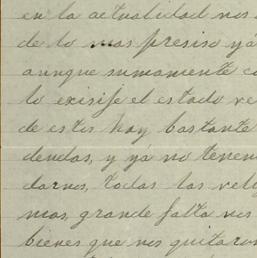 en la actualidad nos
de lo mas presiso yá
aunque sumamente co
lo exisije el estado re
de estos hay bastante
dendas, y yá no tenem
darnos, todas las relig
mos, grande falta nos
bienes que nos quitaron